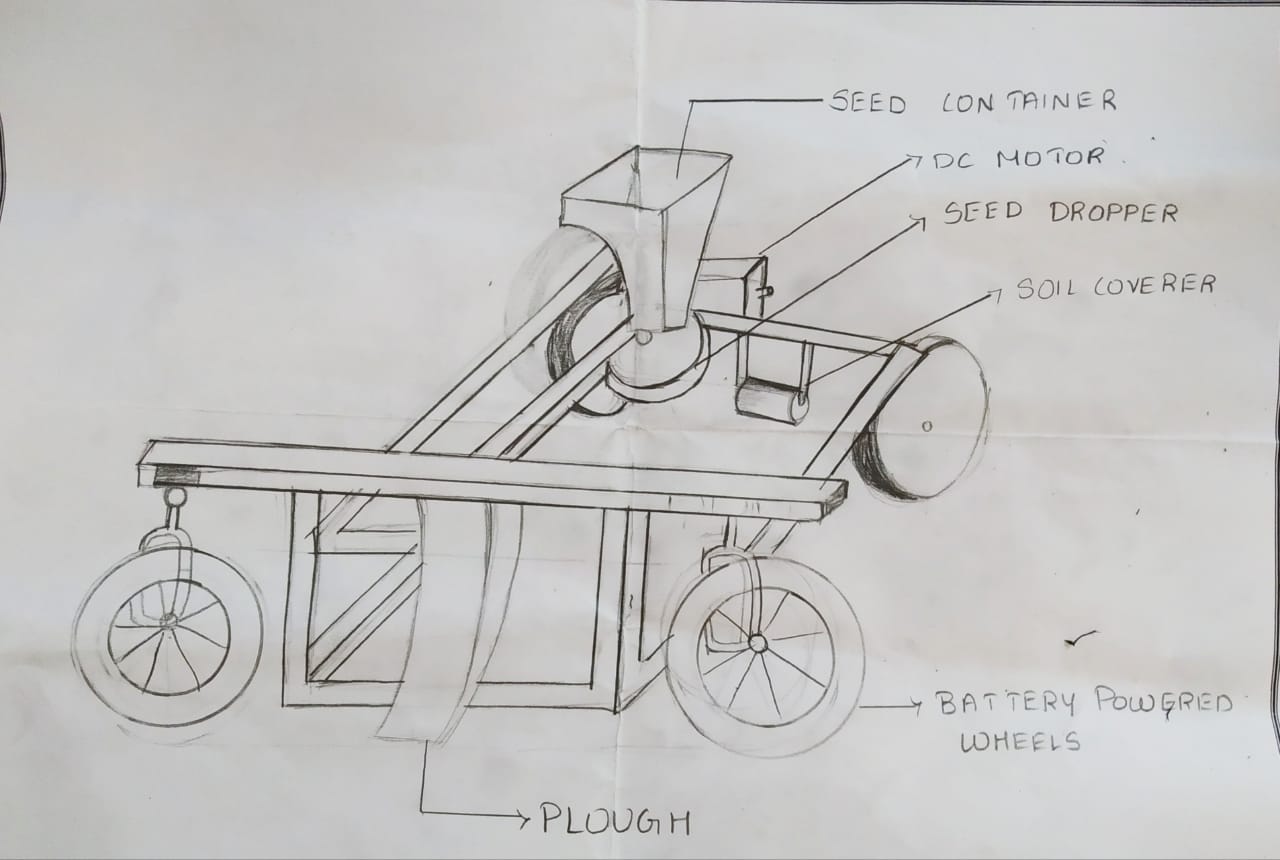 SEED CONTAINER
DC MOTOR
SEED DROPPER
SOIL COVERER
BATTERY POWERED
WHEELS
PLOUGH